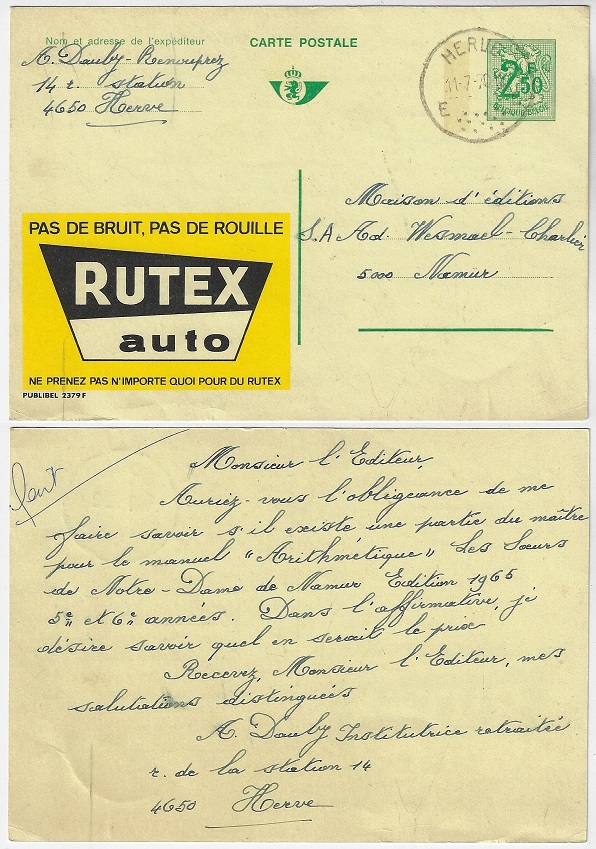 Nom et adresse de l'expéditeur
CARTE POSTALE
A. Dauby-Renouprez
14 r. station
4650 Herve
HERVE
11-7-70
E
2F50
PAS DE BRUIT, PAS DE ROUILLE
RUTEX
auto
NE PRENEZ PAS N'IMPORTE QUOI POUR DU RUTEX
PUBLIBEL 2379 F
Maison d'éditions
S.A Ad. Wesmael-Charlier
5000 Namur
Monsieur l'Editeur,
Auriez-vous l'obligeance de me
faire savoir s'il existe une partie du maître
pour le manuel "Arithmétique" Les Sœurs
de Notre-Dame de Namur Edition 1965
5e et 6e années. Dans l'affirmative, je
désire savoir quel en serait le prix
Recevez, Monsieur l'Editeur, mes
salutations distinguées
A. Dauby Institutrice retraitée
r. de la station 14
4650 Herve